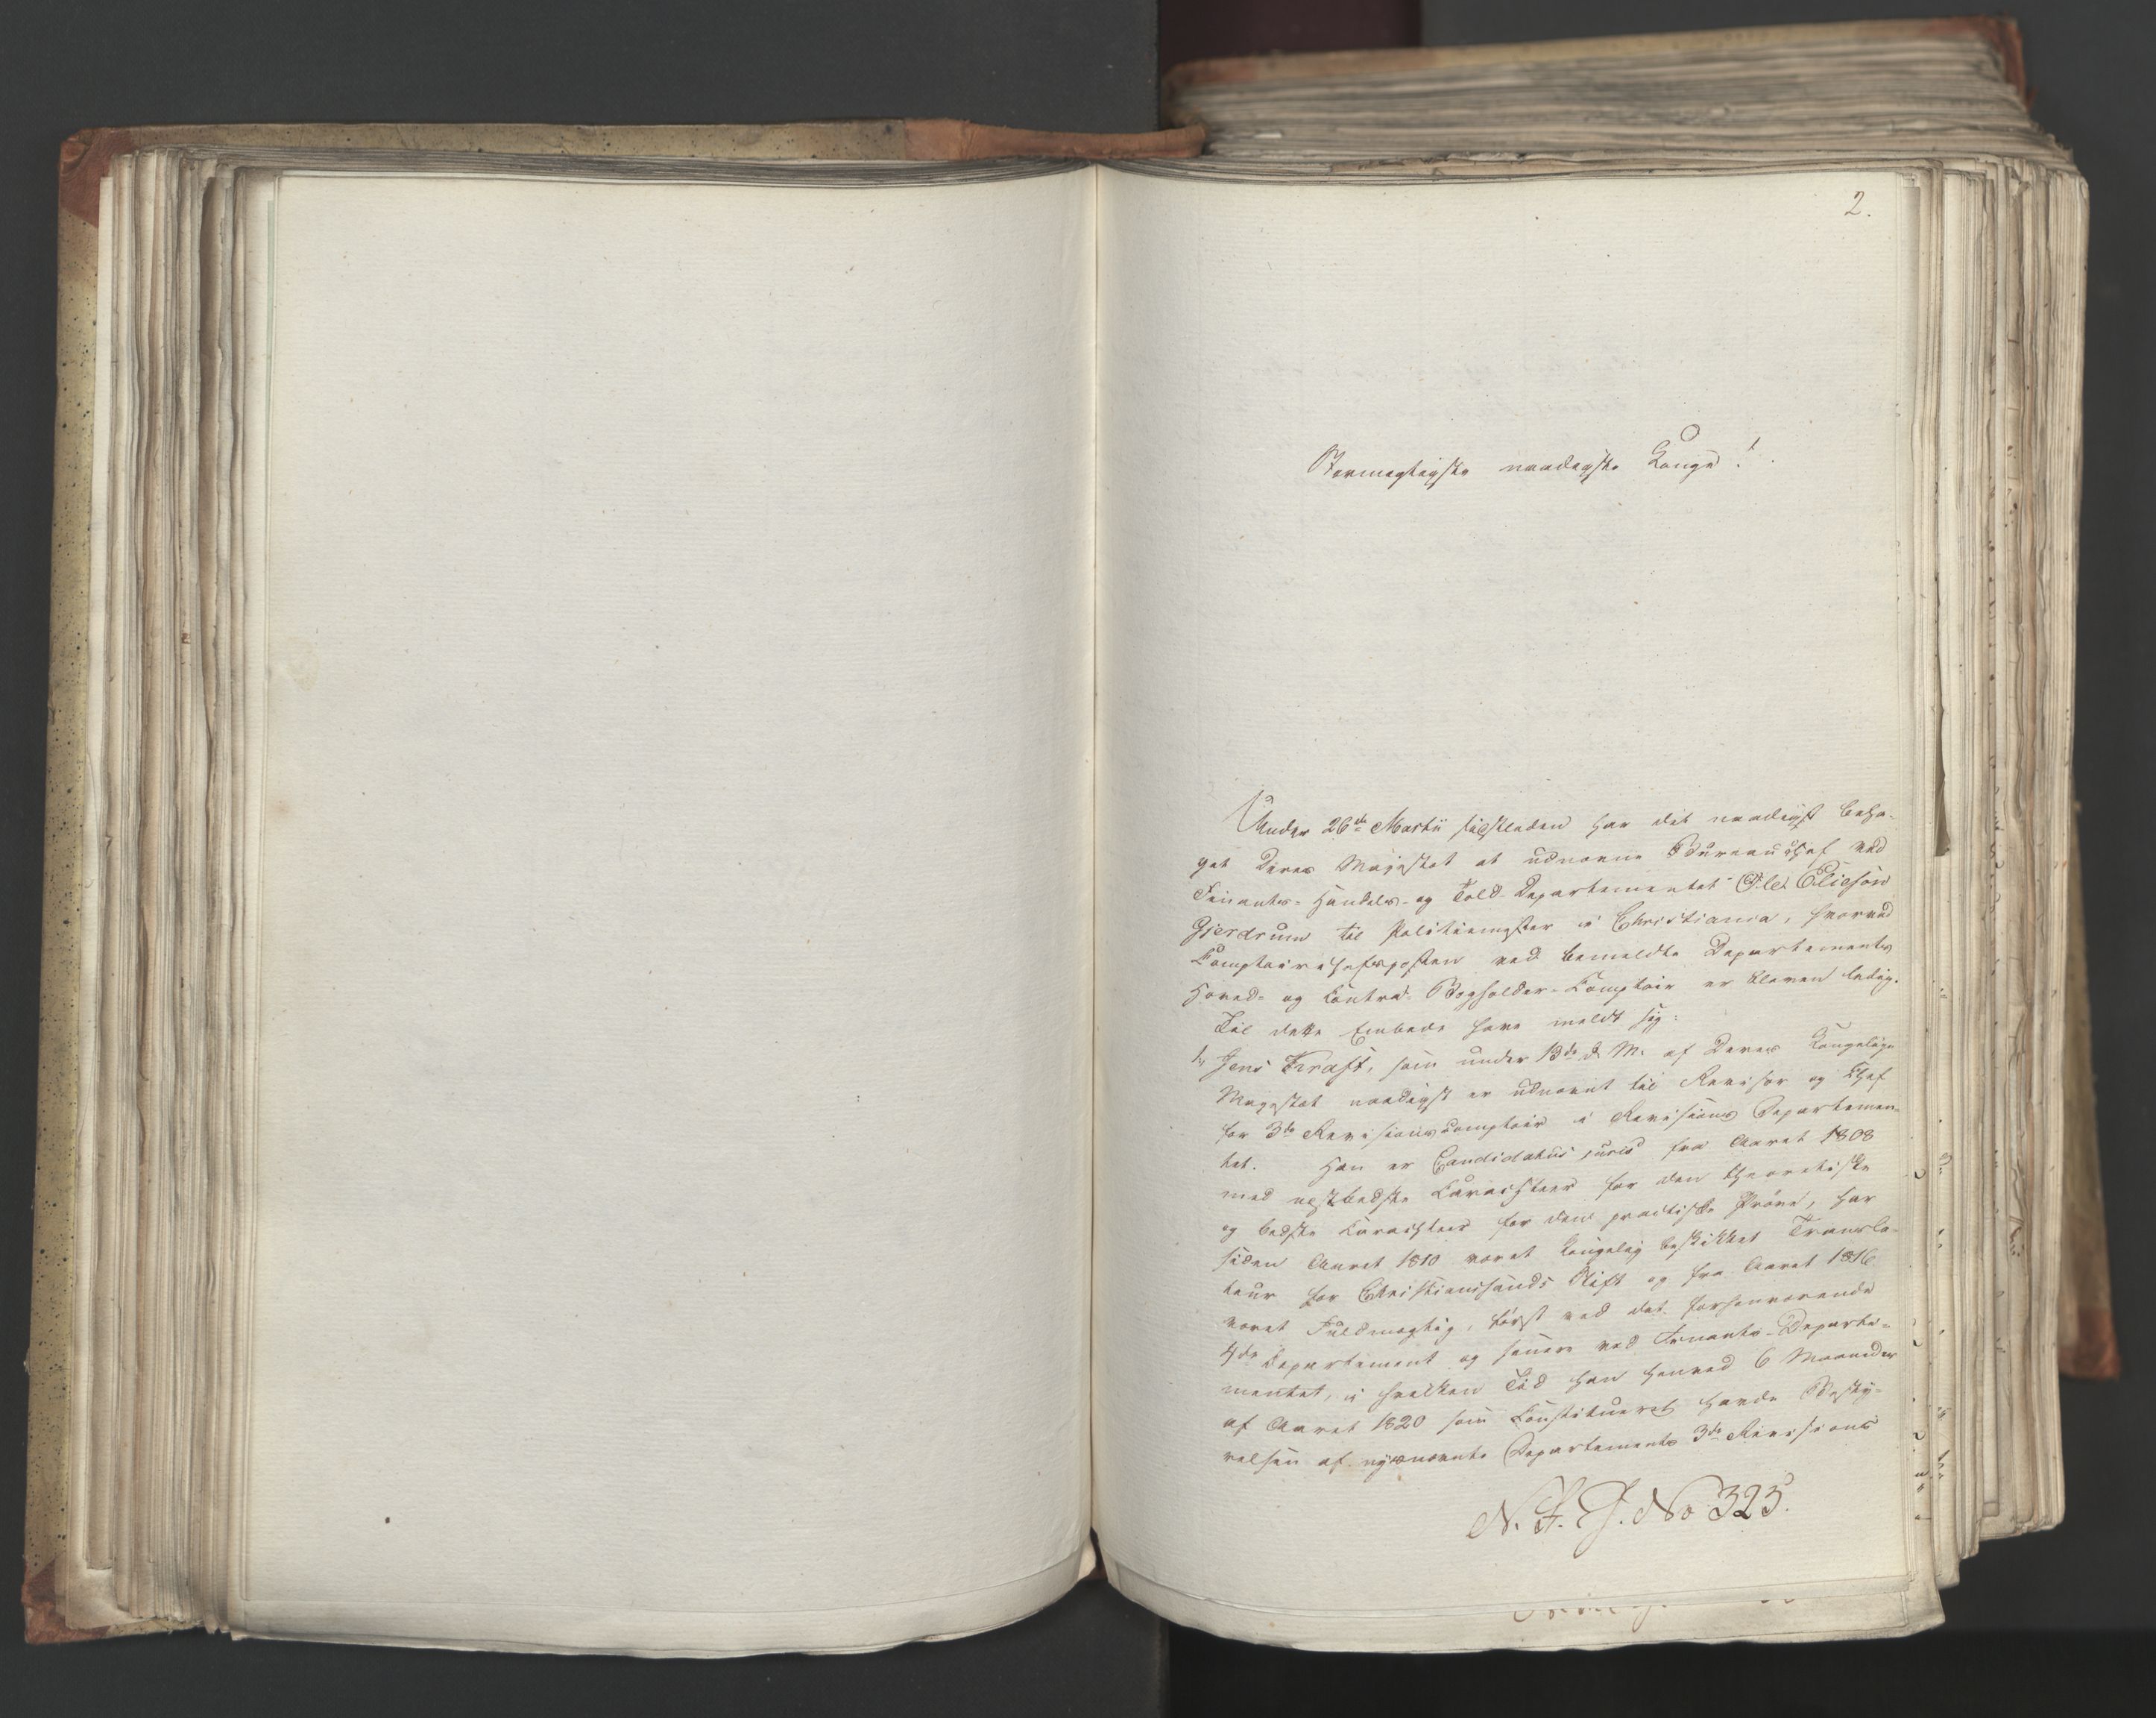 2.
Stormægtigste naadigste Konge!
Under 26de Martii sidstleden har det naadigst beha-
get Deres Majestæt at udnævne Bureauchef ved
Finants- Handels- og Told-Departementet Ole Eliesøn
Gjerdrum til Politiemester i Christiania, hvorved
Comptoirchefsposten ved bemeldte Departements
Hoved- og Contra-Bogholder-Comptoir er bleven ledig.
Til dette Embede have meldt sig:
1, Jens Kraft, som under 13de d. M. af Deres Kongelige
Majestæt naadigst er udnævnt til Revisor og Chef
for 3die Revisionscomptoir i Revisions Departemen-
tet. Han er Candidatus juris fra Aaret 1808
med næstbedste Carachteer for den theoretiske
og bedste Carachteer for den practiske Prøve, har
siden Aaret 1810 været kongelig beskikket Transla-
teur for Christiansands Stift og fra Aaret 1816
været Fuldmægtig, først ved det forhenværende
4de Departement og senere ved Finants-Departe-
mentet, i hvilken Tid han henved 6 Maaneder
af Aaret 1820 som Constitueret havde Besty-
relsen af nysnævnte Departements 3die Revisions
N. F. J. No 323.